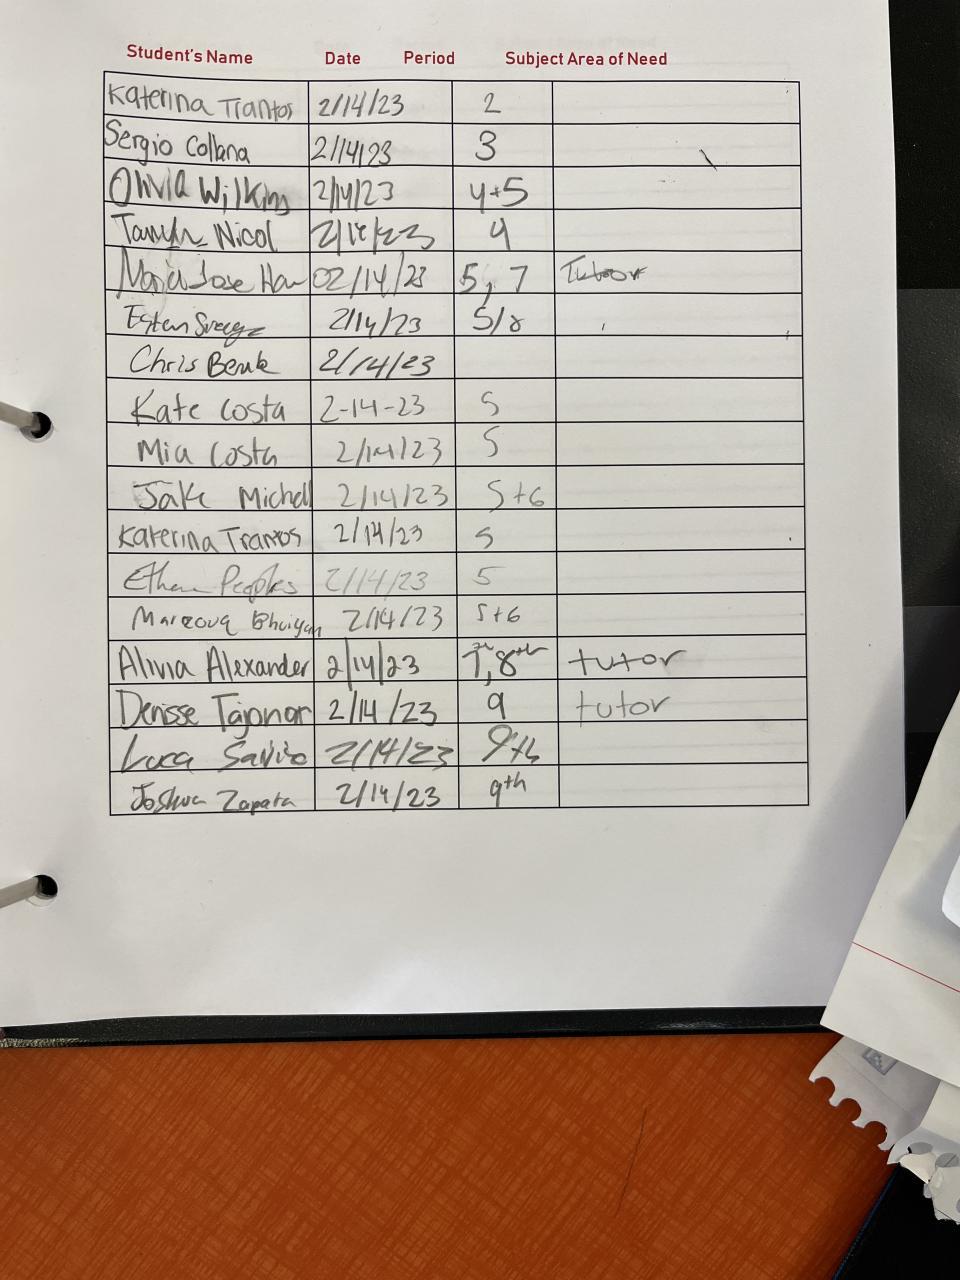 Student's Name Date Period Subject Area of Need
Katerina Trantos 2/14/23 2
Sergio Collana 2/14/23 3
Olivia Wilkins 2/14/23 4+5
Nicol 2/14/23 4
Maria Jose Han 02/14/23 5, 7 Tutor
2/14/23 5/8
Chris Benk 2/14/23
Kate Costa 2-14-23 5
Mia Costa 2/14/23 5
Jake Michell 2/14/23 5+6
Katerina Trantos 2/14/23 5
Ethan Peoples 2/14/23 5
Marzouq Bhuiyan 2/14/23 5+6
Alivia Alexander 2/14/23 7th,8th tutor
Denisse Tajonar 2/14/23 9 tutor
Luca 2/14/23 9th
Joshua Zapata 2/14/23 9th